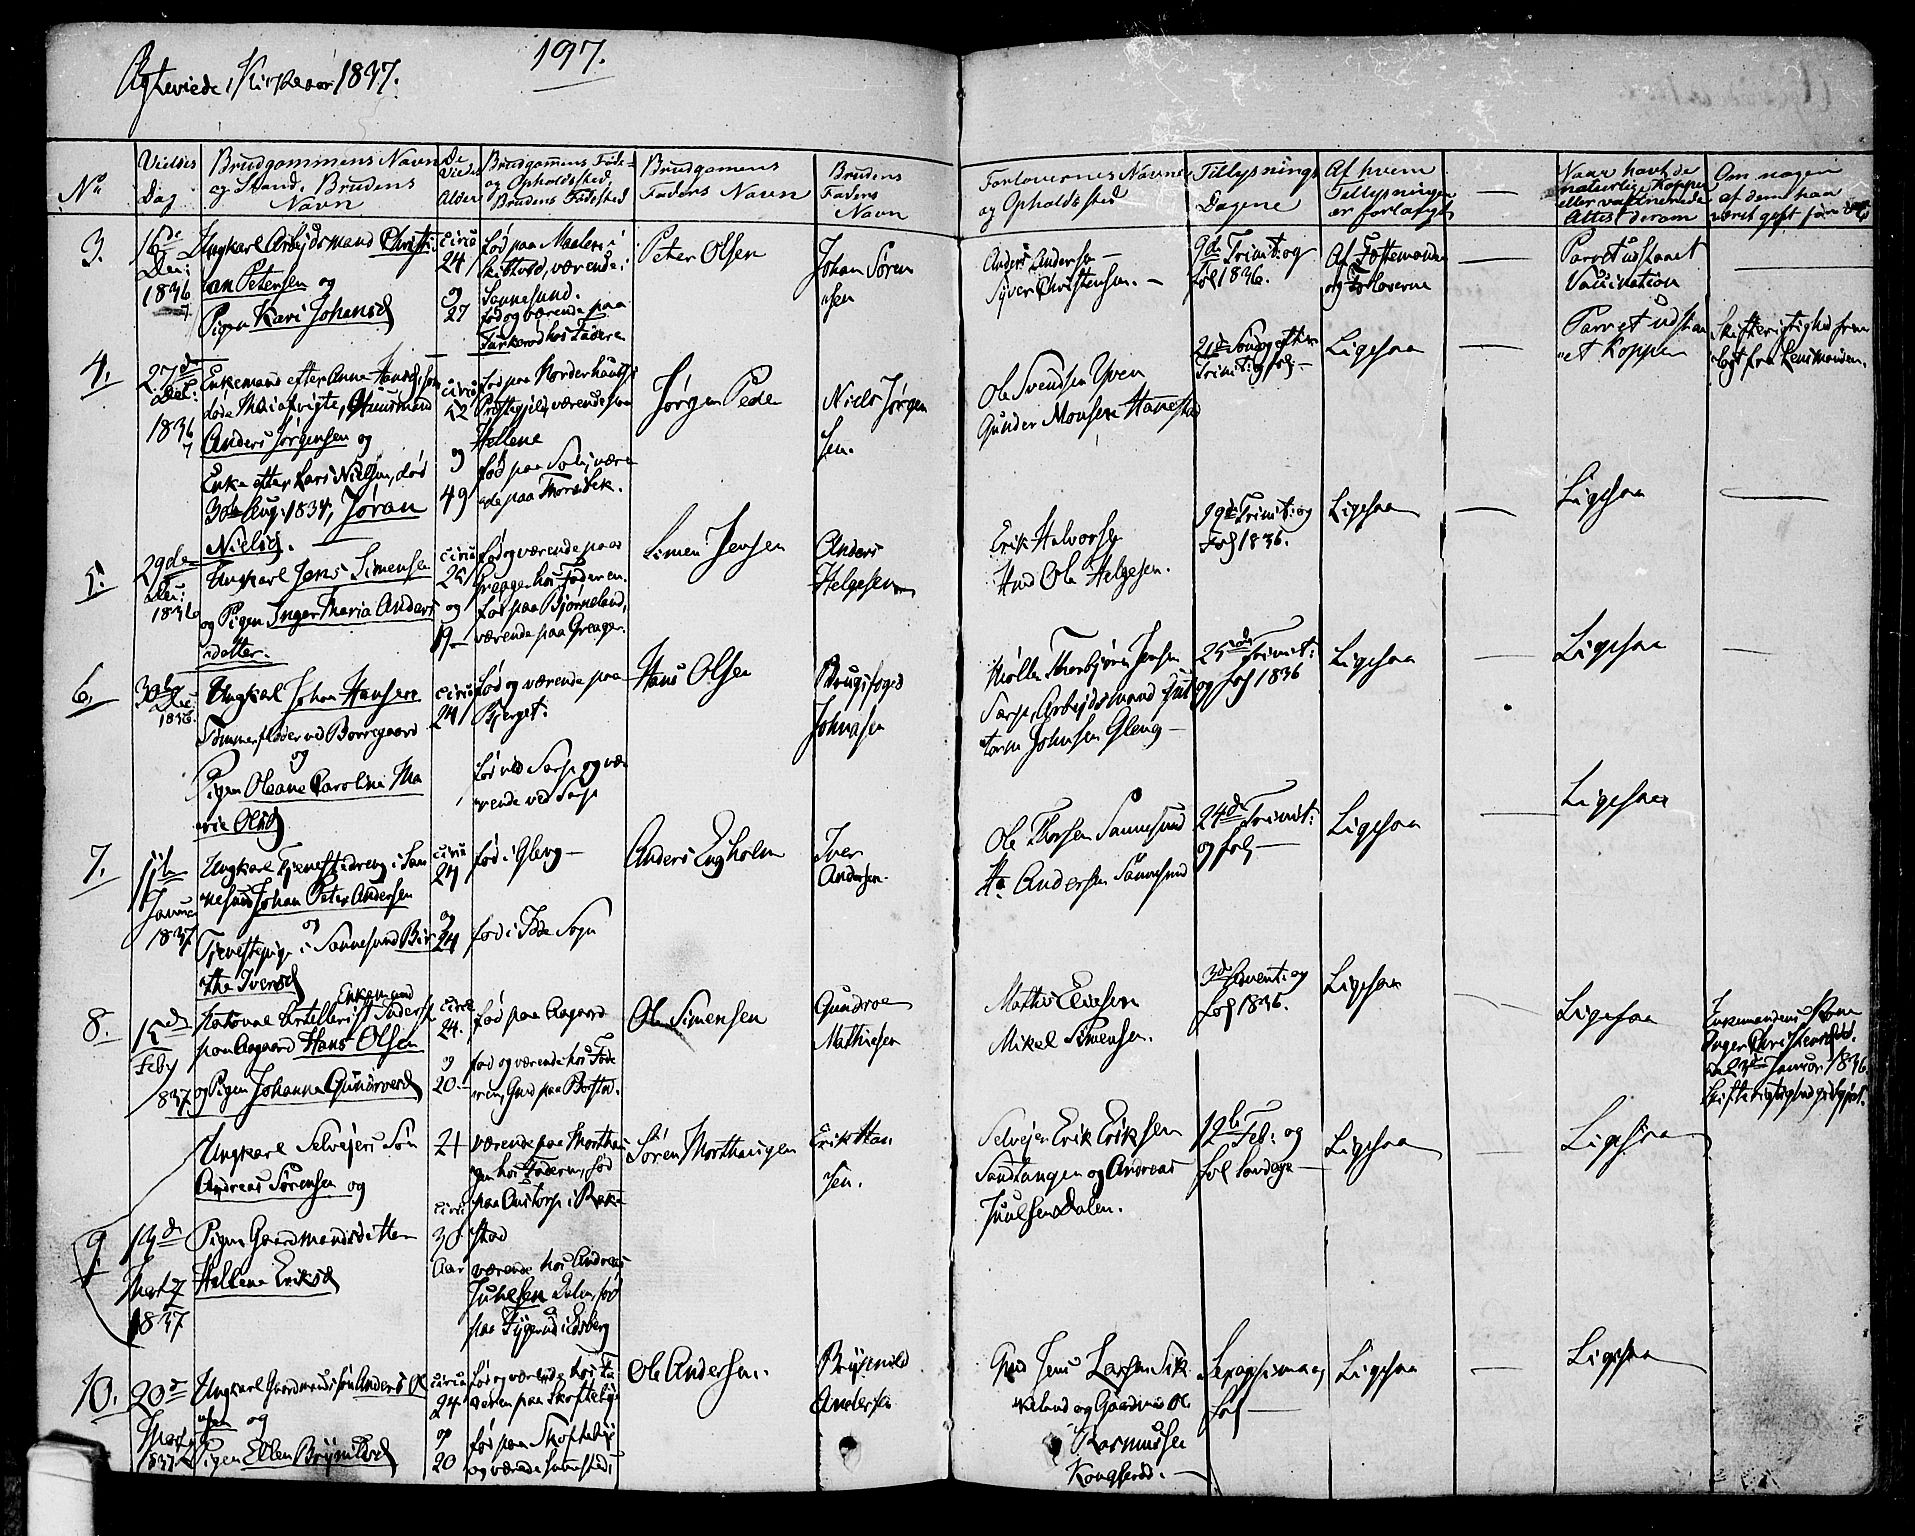 Ægteviede i Kirkeaar 1837.
197.
No
Vielses Dag
Brudgommens Navn og Stand. Brudens Navn
De Viedes Alder
Brudgommens Føde- og Opholdssted Brudens Fødested
Brudgommens Faders Navn
Brudens Faders Navn
Forlovernes Navne og Opholdssted
Tillysnings Dagene
Af hvem Tillysningen er forlangt
Naar havt de naturlige Kopper eller vaccinerede Attest derom
Om nogen af dem har været gift før
3.
16de Dec: 1836
Ungkarl Arbeidsmand Christi-
an Petersen og
Pigen Kari Johansd
circa 24 og 27
Sannesund.
fød og værende paa
hos Fadere
Peter Olsen
Johan Søren
sen
Anders Andersen
Syver Christensen.
9de Trinit: og
fol 1836.
Af Fæstemanden
og Forloverne
Parret udstaaet
Vaccination
4.
27de Dec: 1836
Enkemand efter Anne Hansd, som
døde, Huusmand
Anders Jørgensen og
Enke efter Lars Nielsen, død
30te Aug: 1834, Jøran
Nielsd.
circa 52 og 49
fød paa Norderhaugs
Præstegjeld, værende paa
Hellene
fød paa, være
nde paa
Jørgen Peder
Niels Jørgen
sen.
Ole Svendsen
Gunder Monsen
21de Søndag efter
Trinit: og fol.
Ligesaa
Parret udstaa
et Kopper
Skifterigtighed frem
lagt fra Lensmanden.
5.
29de Dec: 1836
Ungkarl Jens Simensen
og Pigen Inger Maria Anders
datter.
circa 25 og 19
fød og værende paa
Greager hos Faderen.
fød paa Bjørneland,
værende paa Greager.
Simen Jensen
Anders
Helgesen
Erik Halvorsen
Ole Helgesen.
19de Trinit: og
Fol 1836.
Ligesaa
Ligesaa
6.
30te Dec: 1836.
Ungkarl Johan Hansen
Tømmerfløder ved Borregaard
og
Pigen Oleane Carolina Ma
rie Olsd
circa 24
fød og værende paa
Bjerget.
fød ved Sarps og væ
rende ved Sarps
Hans Olsen
Brugsfoged
Johnsen
Møller Thorbjørn Jensen
Sarps, Arbeidsmand Gut
torm Johnsen Gleng
25de Trinit:
og fol 1836
Ligesaa
Ligesaa
7.
Januar 1837
Ungkarl Tjenestedreng i San
nesund Johan Peter Andersen
og
Tjenestepige i Sannesund Bir
the Iversd
circa 24 og 24
fød i Gleng
fød i Idde Sogn
Anders Engholm
Iver
Andersen.
Ole Thorsen Sannesund
Andersen Sannesund
24de Trinit:
og fol
Ligesaa
Ligesaa
8.
15de Feby 1837
National Artillerist Enkemand
paa Aagaard Hans Olsen
og Pigen Johanna Gunervesd
circa 24. og 20.
fød paa Aagaard
fød og værende hos Fade
ren, Grd paa Borstad.
Ole Simensen
Gundroe
Mathiesen
Mathis
Mikel Simensen.
3de Advent: og
fol 1836.
Ligesaa
Ligesaa
Enkemandens Kone
Inger Christensd.
23de Januar 1836.
Skifterigtighed
9.
19de Marty 1837
Ungkarl Selveiers Søn
Andreas Sørensen og
Pigen Gaardmandsdatter
Hellene Eriksd
21
circa 30 Aar
værende paa Northau
gen hos Faderen, fød
paa i Rakke
stad
værende hos Andreas
Juulsen Dalen, fød
paa i Edsberg
Søren Northaugen
Erik Han
sen.
Selveier Erik Eriksen
Sandtangen og Andreas
Juulsen Dalen.
12te Feb: og
fol Søndage
Ligesaa
Ligesaa
10.
20de Marty 1837
Ungkarl Gaardmandssøn Anders Ol
sen og
Pigen Ellen Brynildsd
circa 24. og 20
fød og værende hos Fa
deren paa
fød paa
og værende sammesteds
Ole Andersen.
Brynild
Andersen
Grd Jens Larsen
land og Gaardmd Ol
Rasmussen
Kongsrød.
Sexagesima og
fol
Ligesaa
Ligesaa